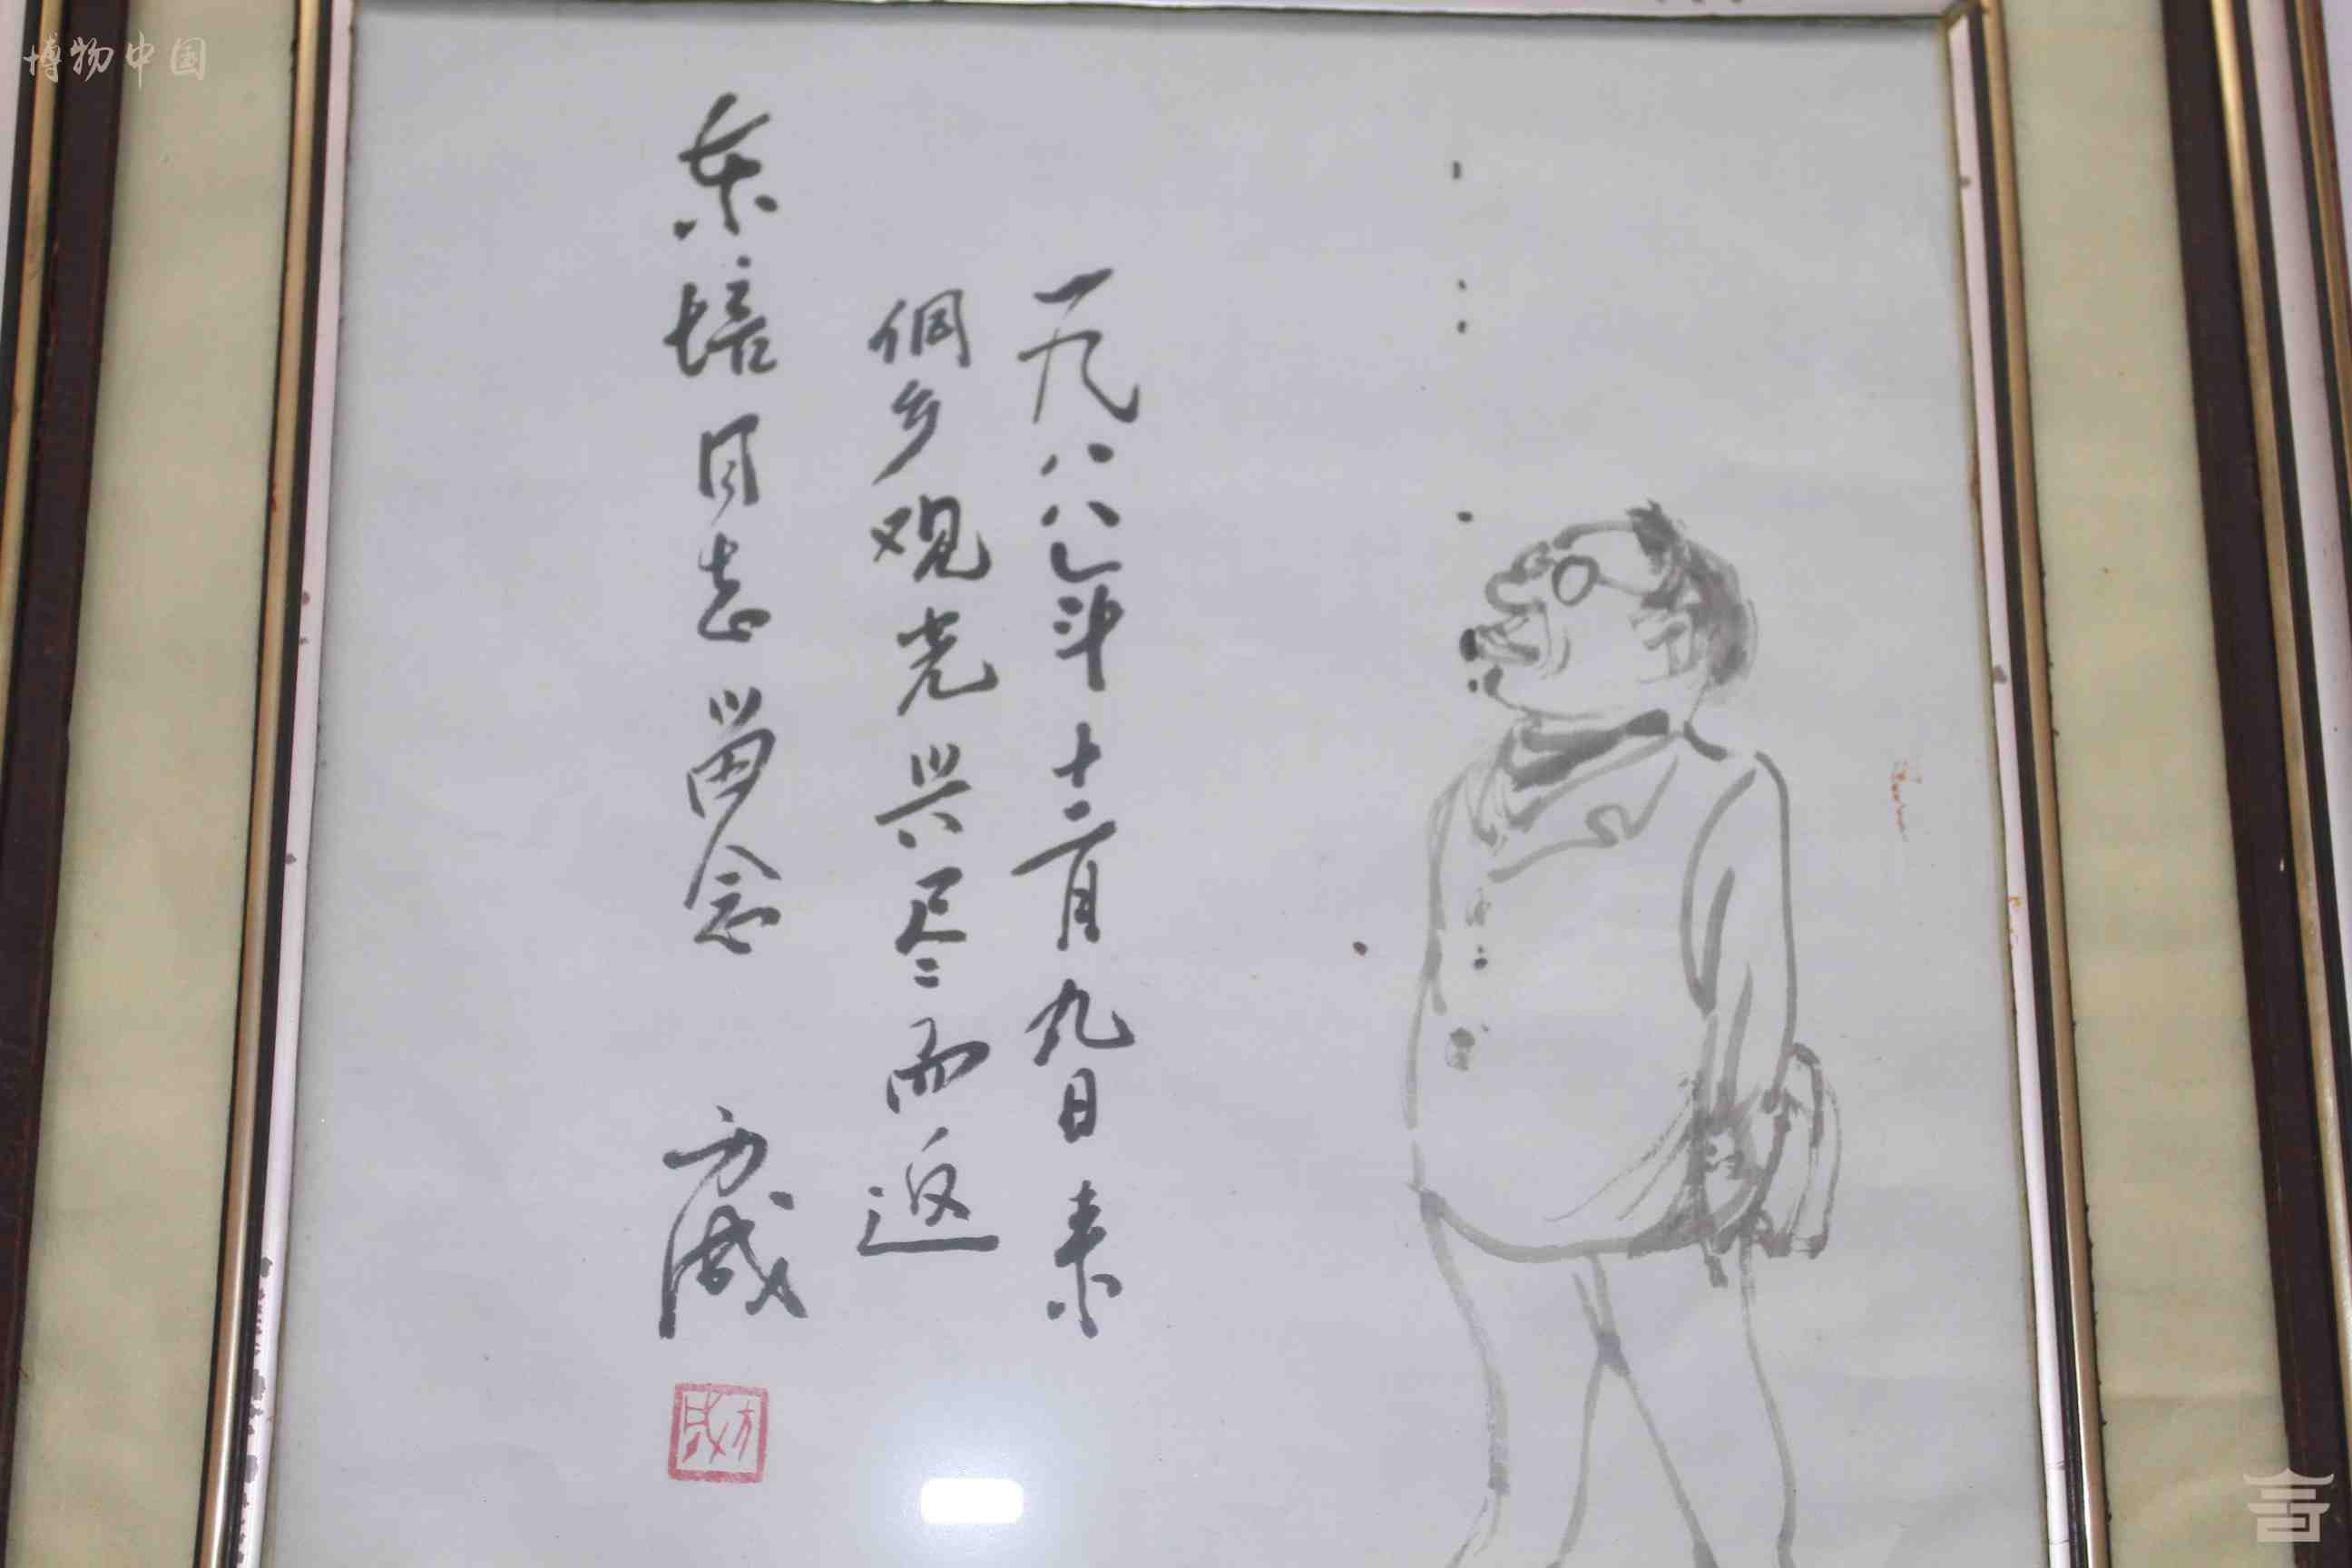 博物中国
一九八八年十二月九日来
侗乡观光兴尽而返
东培同志留念 方成
方成